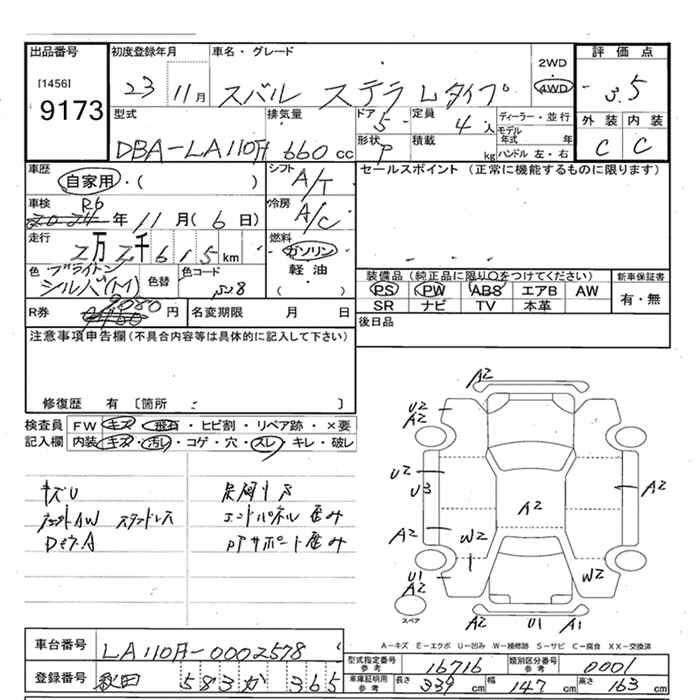 出品番号 初度登録年月 車名・グレード 評価点
[1456]
9173
23 11月 スバル ステラ Lタイプ 2WD 4WD 3.5
型式 排気量 ドア 5 定員 4人 ディーラー・並行 外装 内装
モデル年式 年
DBA-LA110F 660cc 形状 P 積載 kg ハンドル 左・右 C C
車歴 シフト セールスポイント (正常に機能するものに限ります)
自家用・( ) A/T
車検 R6 冷房
2024年 11月(6日) A/C
走行 燃料
2万2千615km ガソリン
軽油
( )
色 ブライトン 色替 色コード
シルバ(M) S28
装備品(純正品に限り○をつけてください) 新車保証書
PS PW ABS エアB AW 有・無
SR ナビ TV 本革
R券 9080円 名変期限 月 日 後日品
注意事項申告欄(不具合内容等は具体的に記入して下さい)
修復歴 有 〔箇所 〕
検査員 FW キズ・飛石・ヒビ割・リペア跡・×要
記入欄 内装 キズ・汚レ・コゲ・穴・スレ・キレ・破レ
キズU
スタッドレス
エンドパネル 歪み
サポート歪み
A2
U2
A2
U2
U3
A2
A2
A2
W2
W2
U1
A2
A2 U1 A1
スペア
A-キズ E-エクボ U-凹み W-補修跡 S-サビ C-腐食 XX-交換済
車台番号 LA110F-0002578
型式指定番号 参考 16716 類別区分番号 参考 0001
登録番号 秋田 583 か 365
車庫証明用 参考 長さ 339cm 幅 147cm 高さ 163cm